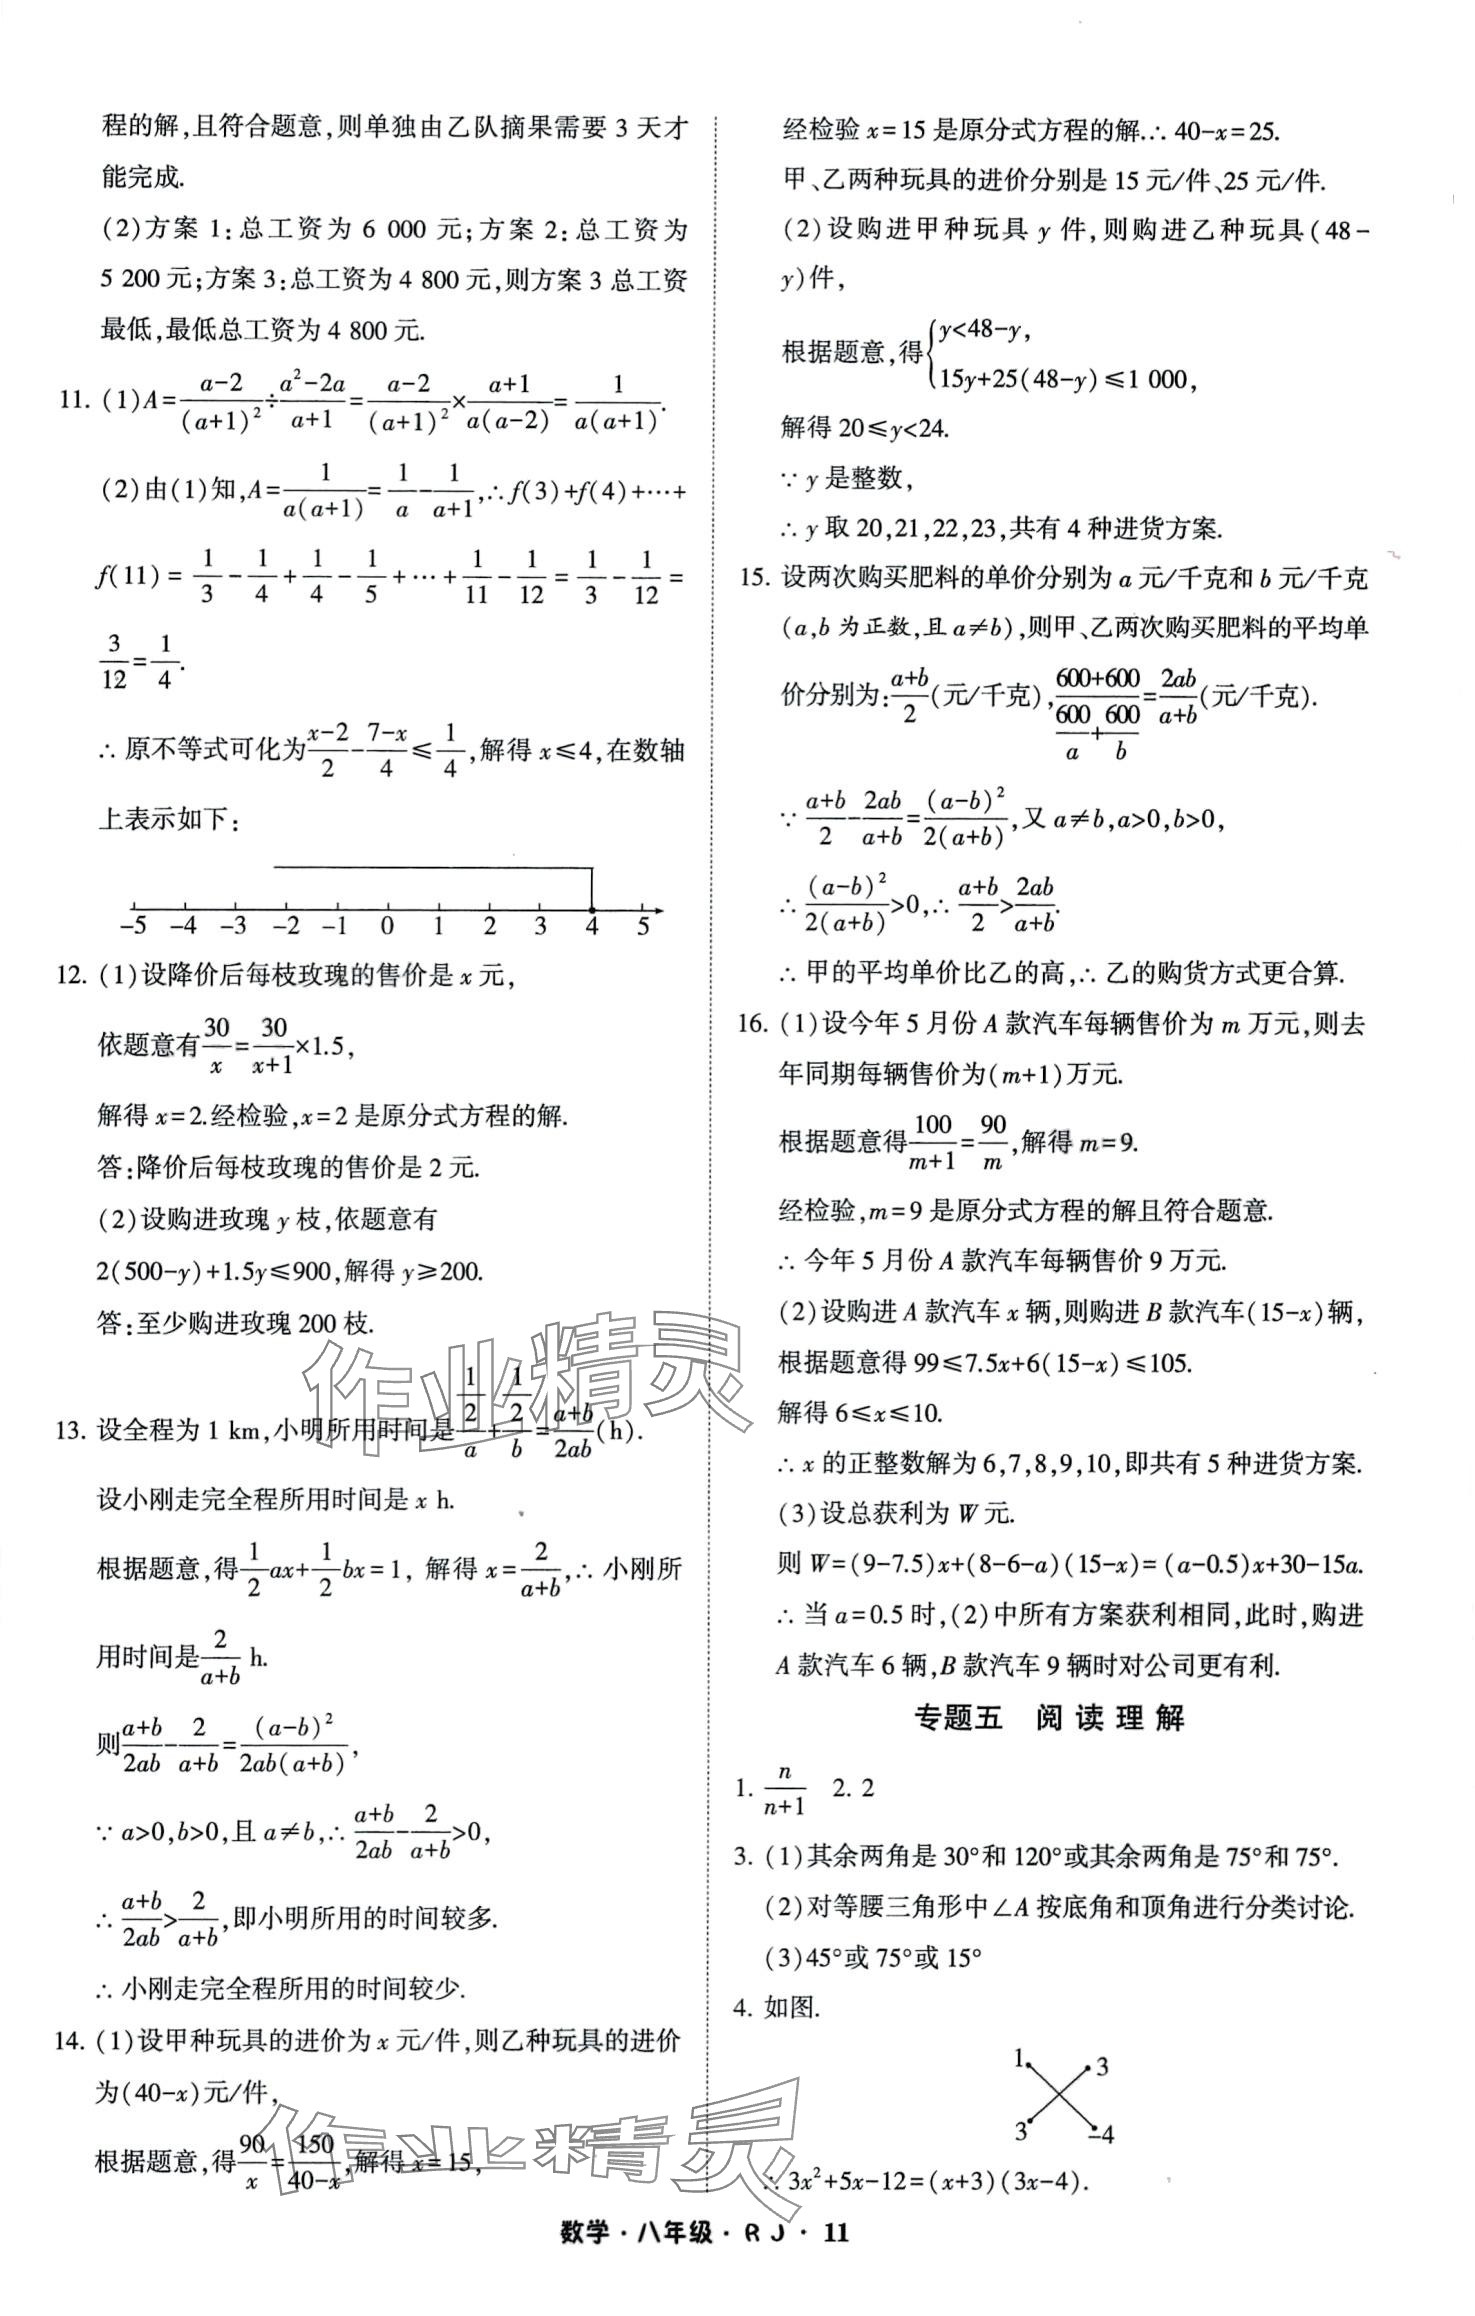 程的解,且符合题意,则单独由乙队摘果需要 3 天才
能完成.
(2)方案 1:总工资为 6 000 元;方案 2:总工资为
5 200 元;方案 3:总工资为 4 800 元,则方案 3 总工资
最低,最低总工资为 4 800 元.
11. (1)A=\frac{a-2}{(a+1)^2}÷\frac{a^2-2a}{a+1}=\frac{a-2}{(a+1)^2}×\frac{a+1}{a(a-2)}=\frac{1}{a(a+1)}.
(2)由(1)知,A=\frac{1}{a(a+1)}=\frac{1}{a}-\frac{1}{a+1},∴f(3)+f(4)+⋯+
f(11)=\frac{1}{3}-\frac{1}{4}+\frac{1}{4}-\frac{1}{5}+⋯+\frac{1}{11}-\frac{1}{12}=\frac{1}{3}-\frac{1}{12}=
\frac{3}{12}=\frac{1}{4}.
∴原不等式可化为\frac{x-2}{2}-\frac{7-x}{4}≤\frac{1}{4},解得 x≤4,在数轴
上表示如下:
-5 -4 -3 -2 -1 0 1 2 3 4 5
12. (1)设降价后每枝玫瑰的售价是 x 元,
依题意有\frac{30}{x}=\frac{30}{x+1}×1.5,
解得 x=2.经检验,x=2 是原分式方程的解.
答:降价后每枝玫瑰的售价是 2 元.
(2)设购进玫瑰 y 枝,依题意有
2(500-y)+1.5y≤900,解得 y≥200.
答:至少购进玫瑰 200 枝.
作业精灵
13. 设全程为 1 km,小明所用时间是\frac{\frac{1}{2}}{a}+\frac{\frac{1}{2}}{b}=\frac{a+b}{2ab}(h).
设小刚走完全程所用时间是 x h.
根据题意,得\frac{1}{2}ax+\frac{1}{2}bx=1,解得 x=\frac{2}{a+b},∴小刚所
用时间是\frac{2}{a+b} h.
则\frac{a+b}{2ab}-\frac{2}{a+b}=\frac{(a-b)^2}{2ab(a+b)},
∵a>0,b>0,且 a≠b,∴\frac{a+b}{2ab}-\frac{2}{a+b}>0,
∴\frac{a+b}{2ab}>\frac{2}{a+b},即小明所用的时间较多.
∴小刚走完全程所用的时间较少.
14. (1)设甲种玩具的进价为 x 元/件,则乙种玩具的进价
为(40-x)元/件,
根据题意,得\frac{90}{x}=\frac{150}{40-x},解得 x=15,
作业精灵
经检验 x=15 是原分式方程的解.∴40-x=25.
甲、乙两种玩具的进价分别是 15 元/件、25 元/件.
(2)设购进甲种玩具 y 件,则购进乙种玩具(48-
y)件,
根据题意,得{y<48-y,
15y+25(48-y)≤1 000,
解得 20≤y<24.
∵y 是整数,
∴y 取 20,21,22,23,共有 4 种进货方案.
15. 设两次购买肥料的单价分别为 a 元/千克和 b 元/千克
(a,b 为正数,且 a≠b),则甲、乙两次购买肥料的平均单
价分别为:\frac{a+b}{2}(元/千克),\frac{600+600}{\frac{600}{a}+\frac{600}{b}}=\frac{2ab}{a+b}(元/千克).
∵\frac{a+b}{2}-\frac{2ab}{a+b}=\frac{(a-b)^2}{2(a+b)},又 a≠b,a>0,b>0,
∴\frac{(a-b)^2}{2(a+b)}>0,∴\frac{a+b}{2}>\frac{2ab}{a+b}.
∴甲的平均单价比乙的高,∴乙的购货方式更合算.
16. (1)设今年 5 月份 A 款汽车每辆售价为 m 万元,则去
年同期每辆售价为(m+1)万元.
根据题意得\frac{100}{m+1}=\frac{90}{m},解得 m=9.
经检验,m=9 是原分式方程的解且符合题意.
∴今年 5 月份 A 款汽车每辆售价 9 万元.
(2)设购进 A 款汽车 x 辆,则购进 B 款汽车(15-x)辆,
根据题意得 99≤7.5x+6(15-x)≤105.
解得 6≤x≤10.
∴x 的正整数解为 6,7,8,9,10,即共有 5 种进货方案.
(3)设总获利为 W 元.
则 W=(9-7.5)x+(8-6-a)(15-x)=(a-0.5)x+30-15a.
∴当 a=0.5 时,(2)中所有方案获利相同,此时,购进
A 款汽车 6 辆,B 款汽车 9 辆时对公司更有利.
专题五 阅读理解
1. \frac{n}{n+1} 2. 2
3. (1)其余两角是 30°和 120°或其余两角是 75°和 75°.
(2)对等腰三角形中∠A 按底角和顶角进行分类讨论.
(3)45°或 75°或 15°
4. 如图.
1 3
3 -4
∴3x^2+5x-12=(x+3)(3x-4).
数学·八年级·RJ·11